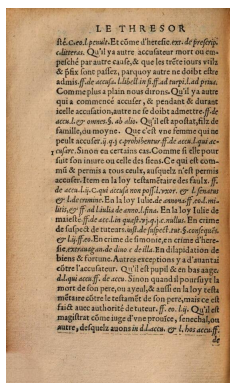 LE THRESOR
sté. C. eo. l. penult. Et cōme d'heresie. ext. de præscrip.
c. litteras. Qu'il y a autre accusateur mort ou em-
pesché par autre cause, & que les trēte iours vtils
& pfix sont passez, parquoy autre ne doibt estre
admis. ff. de accusa. l. libell. in fi. ff. ad turpi. l. ad prius.
Comme plus a plain nous dirons. Qu'il y a autre
qui a commencé accuser, & pendant & durant
icelle accusation, autre ne se doibt admettre. ff. de
accu. l. & omnes. §. ab alio. Qu'il est apostat, filz de
famille, ou moyne. Que c'est vne femme qui ne
peult accuser. ij. q. prohibentur ff. de accu. l. qui ac-
cusare. Sinon en certains cas. Comme si elle pour
suit son iniure ou celle des siens. Ce qui est com-
mū & permis a tous ceulx, ausquelz n'est permis
accuser. Item en la loy testamētaire des faulx. ff.
de accu. l. ij. C. qui accusa non poss. l. vxor. & l. senatus
& l. de crimine. En la loy Iulie de annona. ff. eo. l. mi-
litis, & ff. ad l. iulia de anno. l. fina. En la loy Iulie de
maiesté ff. de acc. l. in quæst. vi. q. i. c. nullus. En crime
de suspect de tuteurs. iust. de suspect. tut. §. consequēs.
& l. ij. ff. eo. En crime de simonie, en crime d'here-
sie, extrauagan. de dino c. de illa. En dilapidation de
biens & fortune. Autres exceptions y a d'auantai
cōtre l'accusateur. Qu'il est pupil & en bas aage.
d. l. qui accu. ff. de accu. Sinon quand il poursuyt la
mort de son pere, ou ayeul, & aussi en la loy testa
mētaire cōtre le testamēt de son pere, mais ce est
faict auec authorité de tuteur. ff. eo. l. ij. Qu'il est
magistrat cōme iuge d'vne prouīce, senechal, ou
autre, desquelz auons in d. l. accu. & l. hos accu. ff.
de